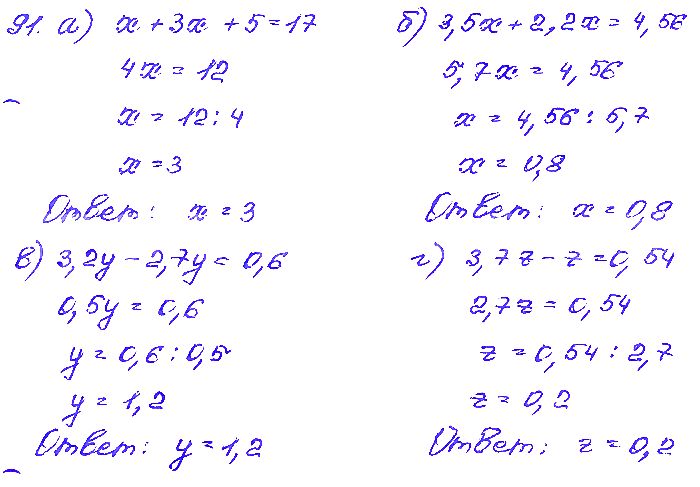 91. а) x + 3x + 5 = 17
4x = 12
x = 12 : 4
x = 3
Ответ: x = 3
б) 3,5x + 2,2x = 4,56
5,7x = 4,56
x = 4,56 : 5,7
x = 0,8
Ответ: x = 0,8
в) 3,2y - 2,7y = 0,6
0,5y = 0,6
y = 0,6 : 0,5
y = 1,2
Ответ: y = 1,2
г) 3,7z - z = 0,54
2,7z = 0,54
z = 0,54 : 2,7
z = 0,2
Ответ: z = 0,2